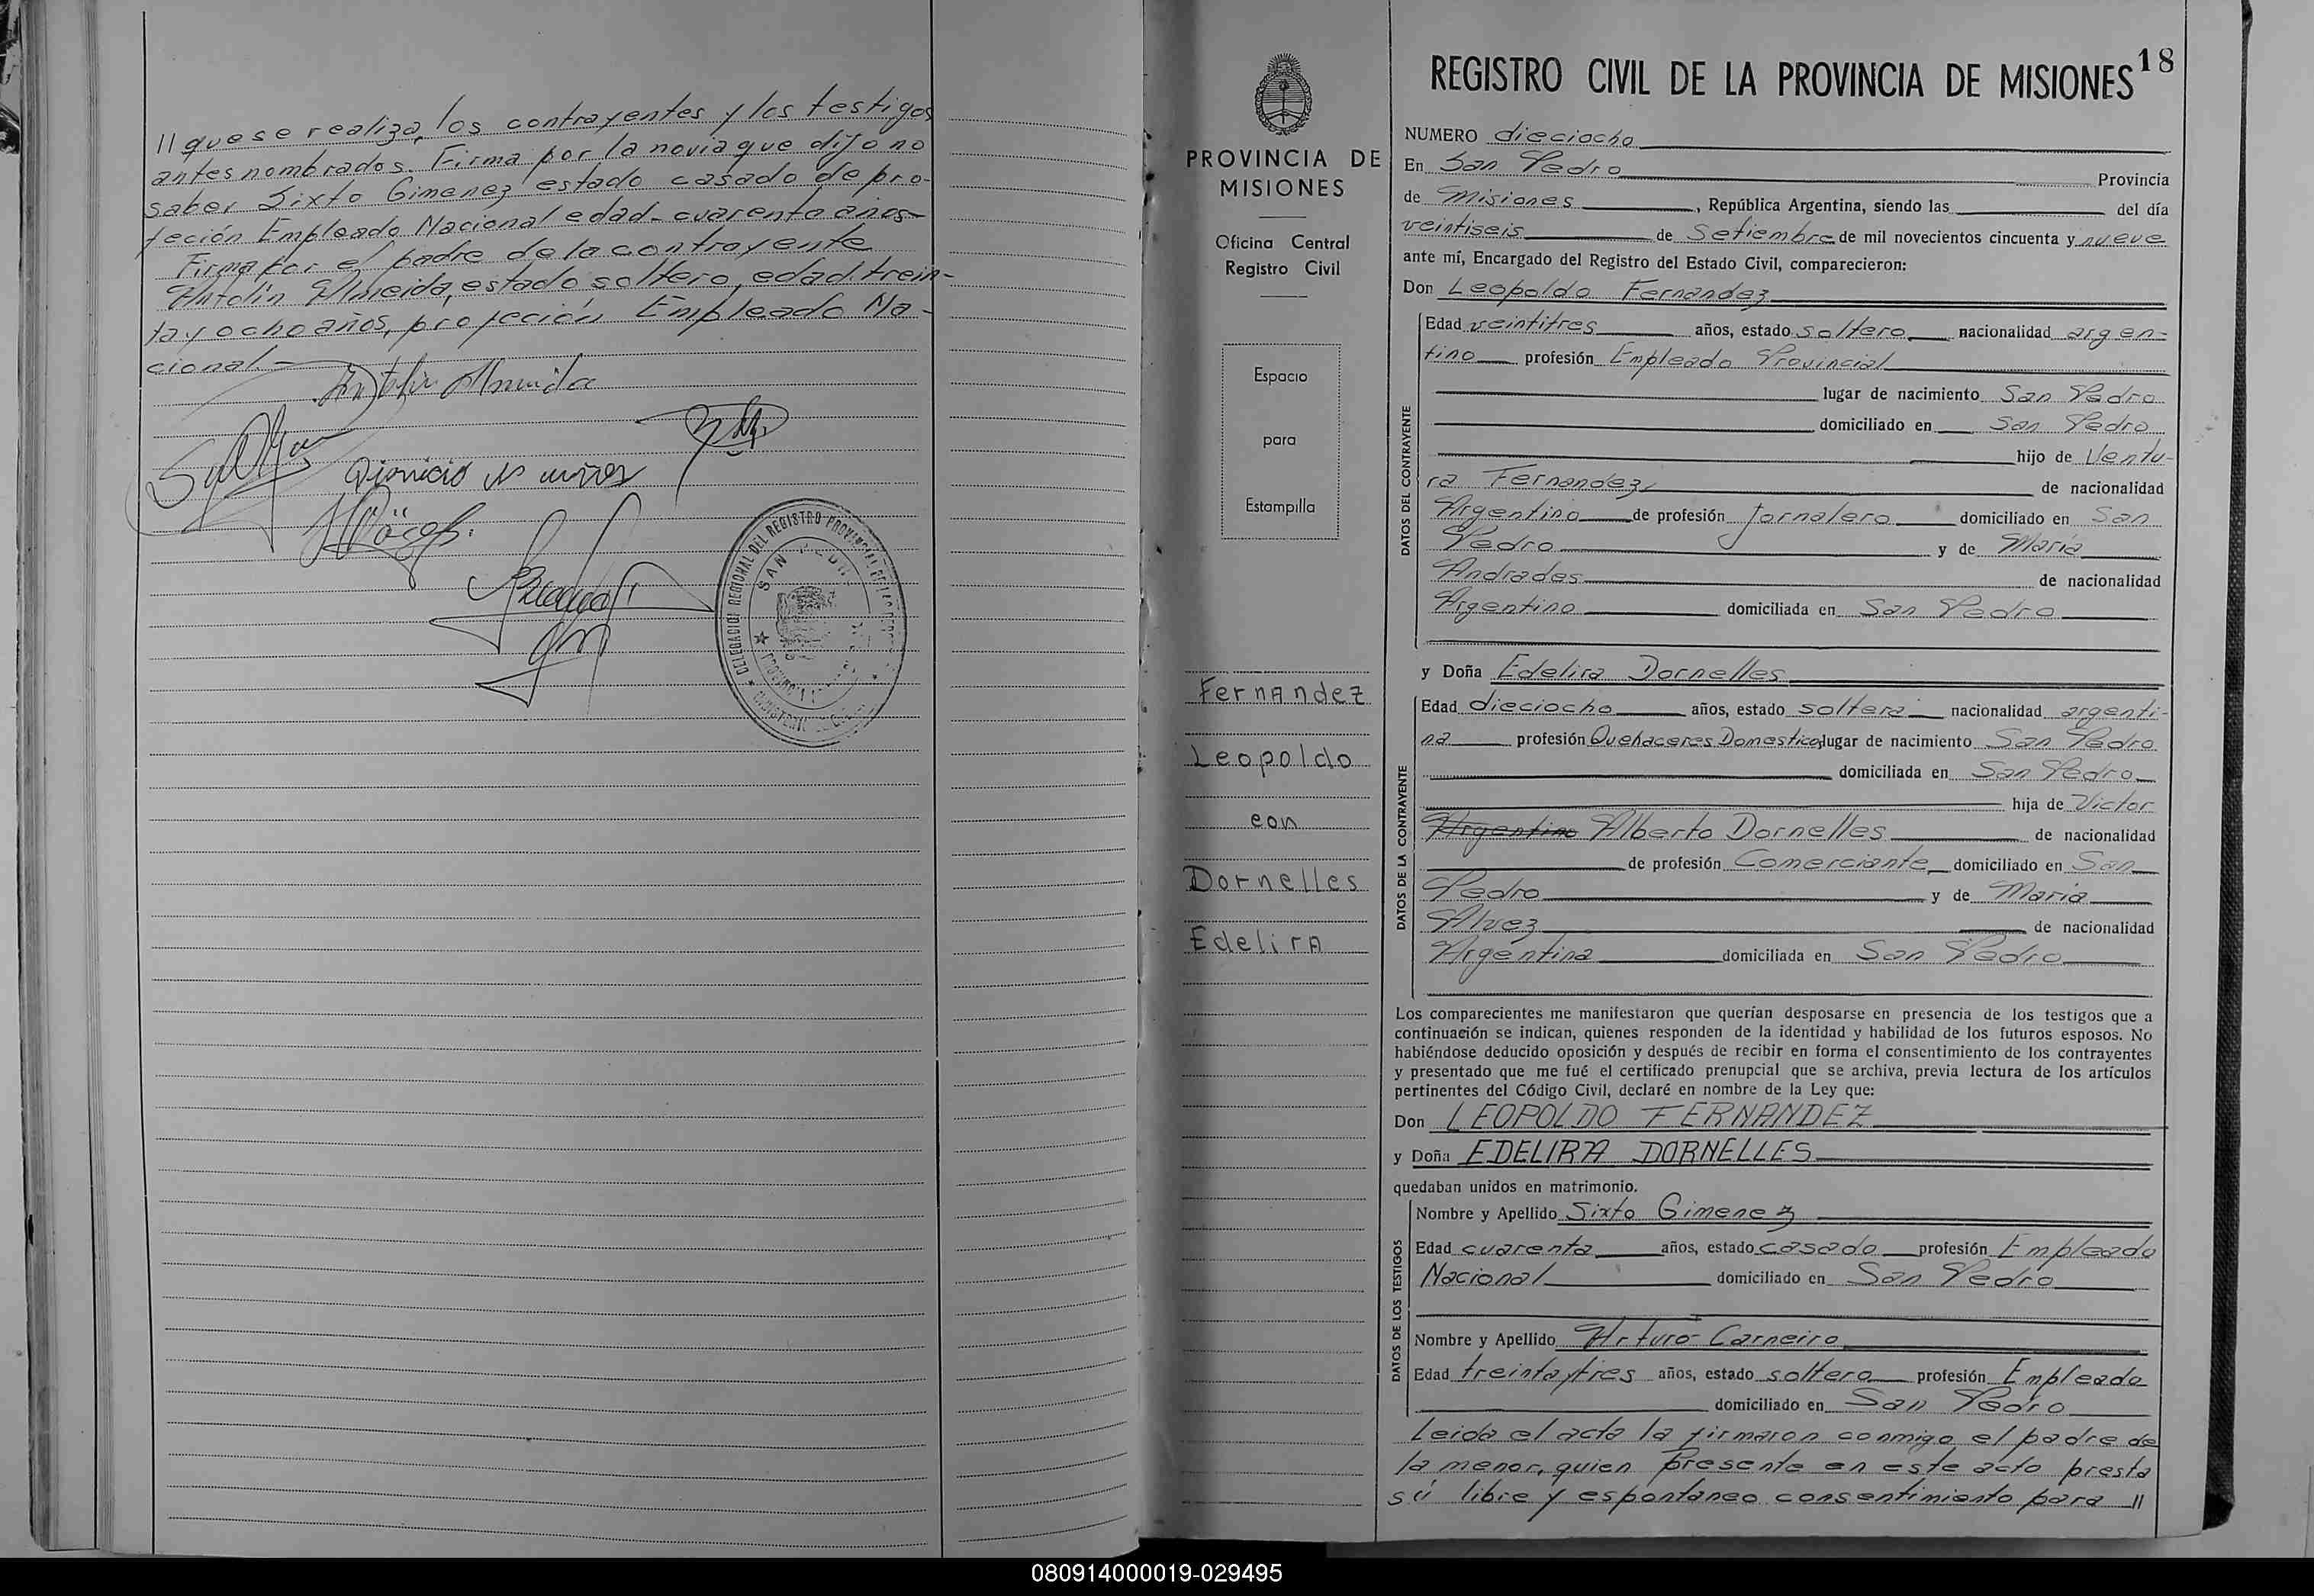 // que se realiza, los contrayentes y los testigos
antes nombrados. Firma por la novia que dijo no
saber Sixto Gimenez estado casado de pro-
feción Empleado Nacional edad-cuarenta años-
Firma por el padre de la contrayente
Antolín Almeida, estado soltero, edad, trein-
ta y ocho años, profeción Empleado Na-
cional.-
DELEGACION REGIONAL DEL REGISTRO PROVINCIAL
SAN PEDRO
PROVINCIA
PROVINCIA DE
MISIONES
Oficina Central
Registro Civil
Espacio
para
Estampilla
Fernandez
Leopoldo
con
Dornelles
Edelira
18
REGISTRO CIVIL DE LA PROVINCIA DE MISIONES
NUMERO dieciocho
En San Pedro Provincia
de Misiones, República Argentina, siendo las del día
veintiseis de Setiembre de mil novecientos cincuenta y nueve
ante mí, Encargado del Registro del Estado Civil, comparecieron:
Don Leopoldo Fernandez
DATOS DEL CONTRAYENTE
Edad veintitres años, estado soltero nacionalidad argen-
tino profesión Empleado Provincial
lugar de nacimiento San Pedro
domiciliado en San Pedro
hijo de Ventu-
ra Fernandez, de nacionalidad
Argentino de profesión Jornalero domiciliado en San
Pedro y de María
Andrades de nacionalidad
Argentina domiciliada en San Pedro
y Doña Edelira Dornelles
DATOS DE LA CONTRAYENTE
Edad dieciocho años, estado soltera nacionalidad argenti-
na profesión Quehaceres Domesticos lugar de nacimiento San Pedro
domiciliada en San Pedro
hija de Victor
Argentino Alberto Dornelles de nacionalidad
de profesión Comerciante domiciliado en San
Pedro y de María
Alvez de nacionalidad
Argentina domiciliada en San Pedro
Los comparecientes me manifestaron que querían desposarse en presencia de los testigos que a
continuación se indican, quienes responden de la identidad y habilidad de los futuros esposos. No
habiéndose deducido oposición y después de recibir en forma el consentimiento de los contrayentes
y presentado que me fué el certificado prenupcial que se archiva, previa lectura de los artículos
pertinentes del Código Civil, declaré en nombre de la Ley que:
Don LEOPOLDO FERNANDEZ
y Doña EDELIRA DORNELLES
quedaban unidos en matrimonio.
DATOS DE LOS TESTIGOS
Nombre y Apellido Sixto Gimenez
Edad cuarenta años, estado casado profesión Empleado
Nacional domiciliado en San Pedro
Nombre y Apellido Arturo Carneiro
Edad treinta y tres años, estado soltero profesión Empleado
domiciliado en San Pedro
Leida el acta la firmaron conmigo el padre de
la menor, quien presente en este acto presta
sú libre y espontáneo consentimiento para //
080914000019-029495